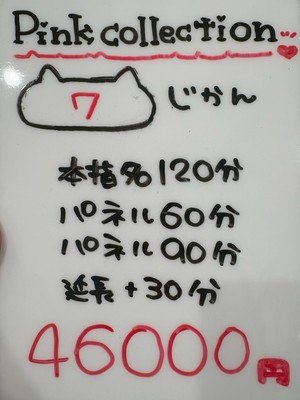 Pink collection
7 じかん
本指名120分
パネル60分
パネル90分
延長+30分
46000円